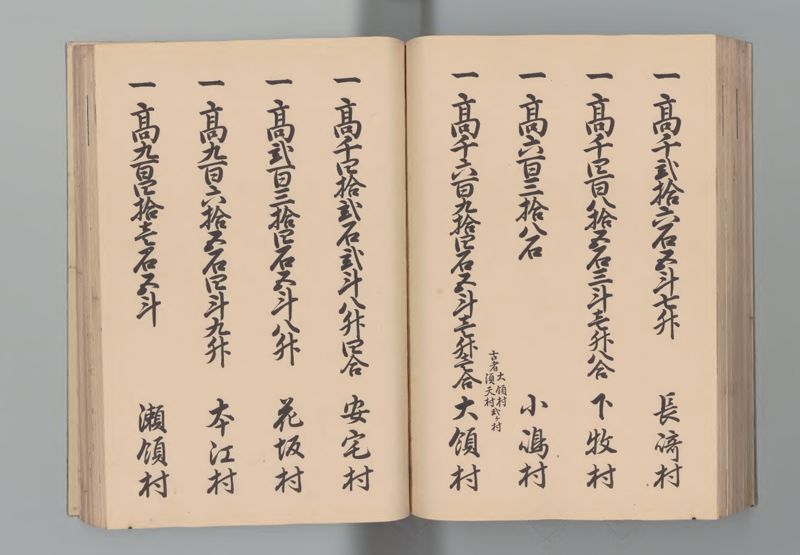 一高千弐拾六石五斗七升 長﨑村
一高千四百八拾五石三斗壱升八合 下牧村
一高六百三拾八石 小嶋村
古者 大領村 須天村 弐ケ村
一高千六百九拾四石五斗壱升壱合 大領村
一高千四拾弐石弐斗八升四合 安宅村
一高弐百三拾四石五斗八升 花坂村
一高九百六拾五石四斗九升 本江村
一高九百四拾壱石五斗 瀬領村